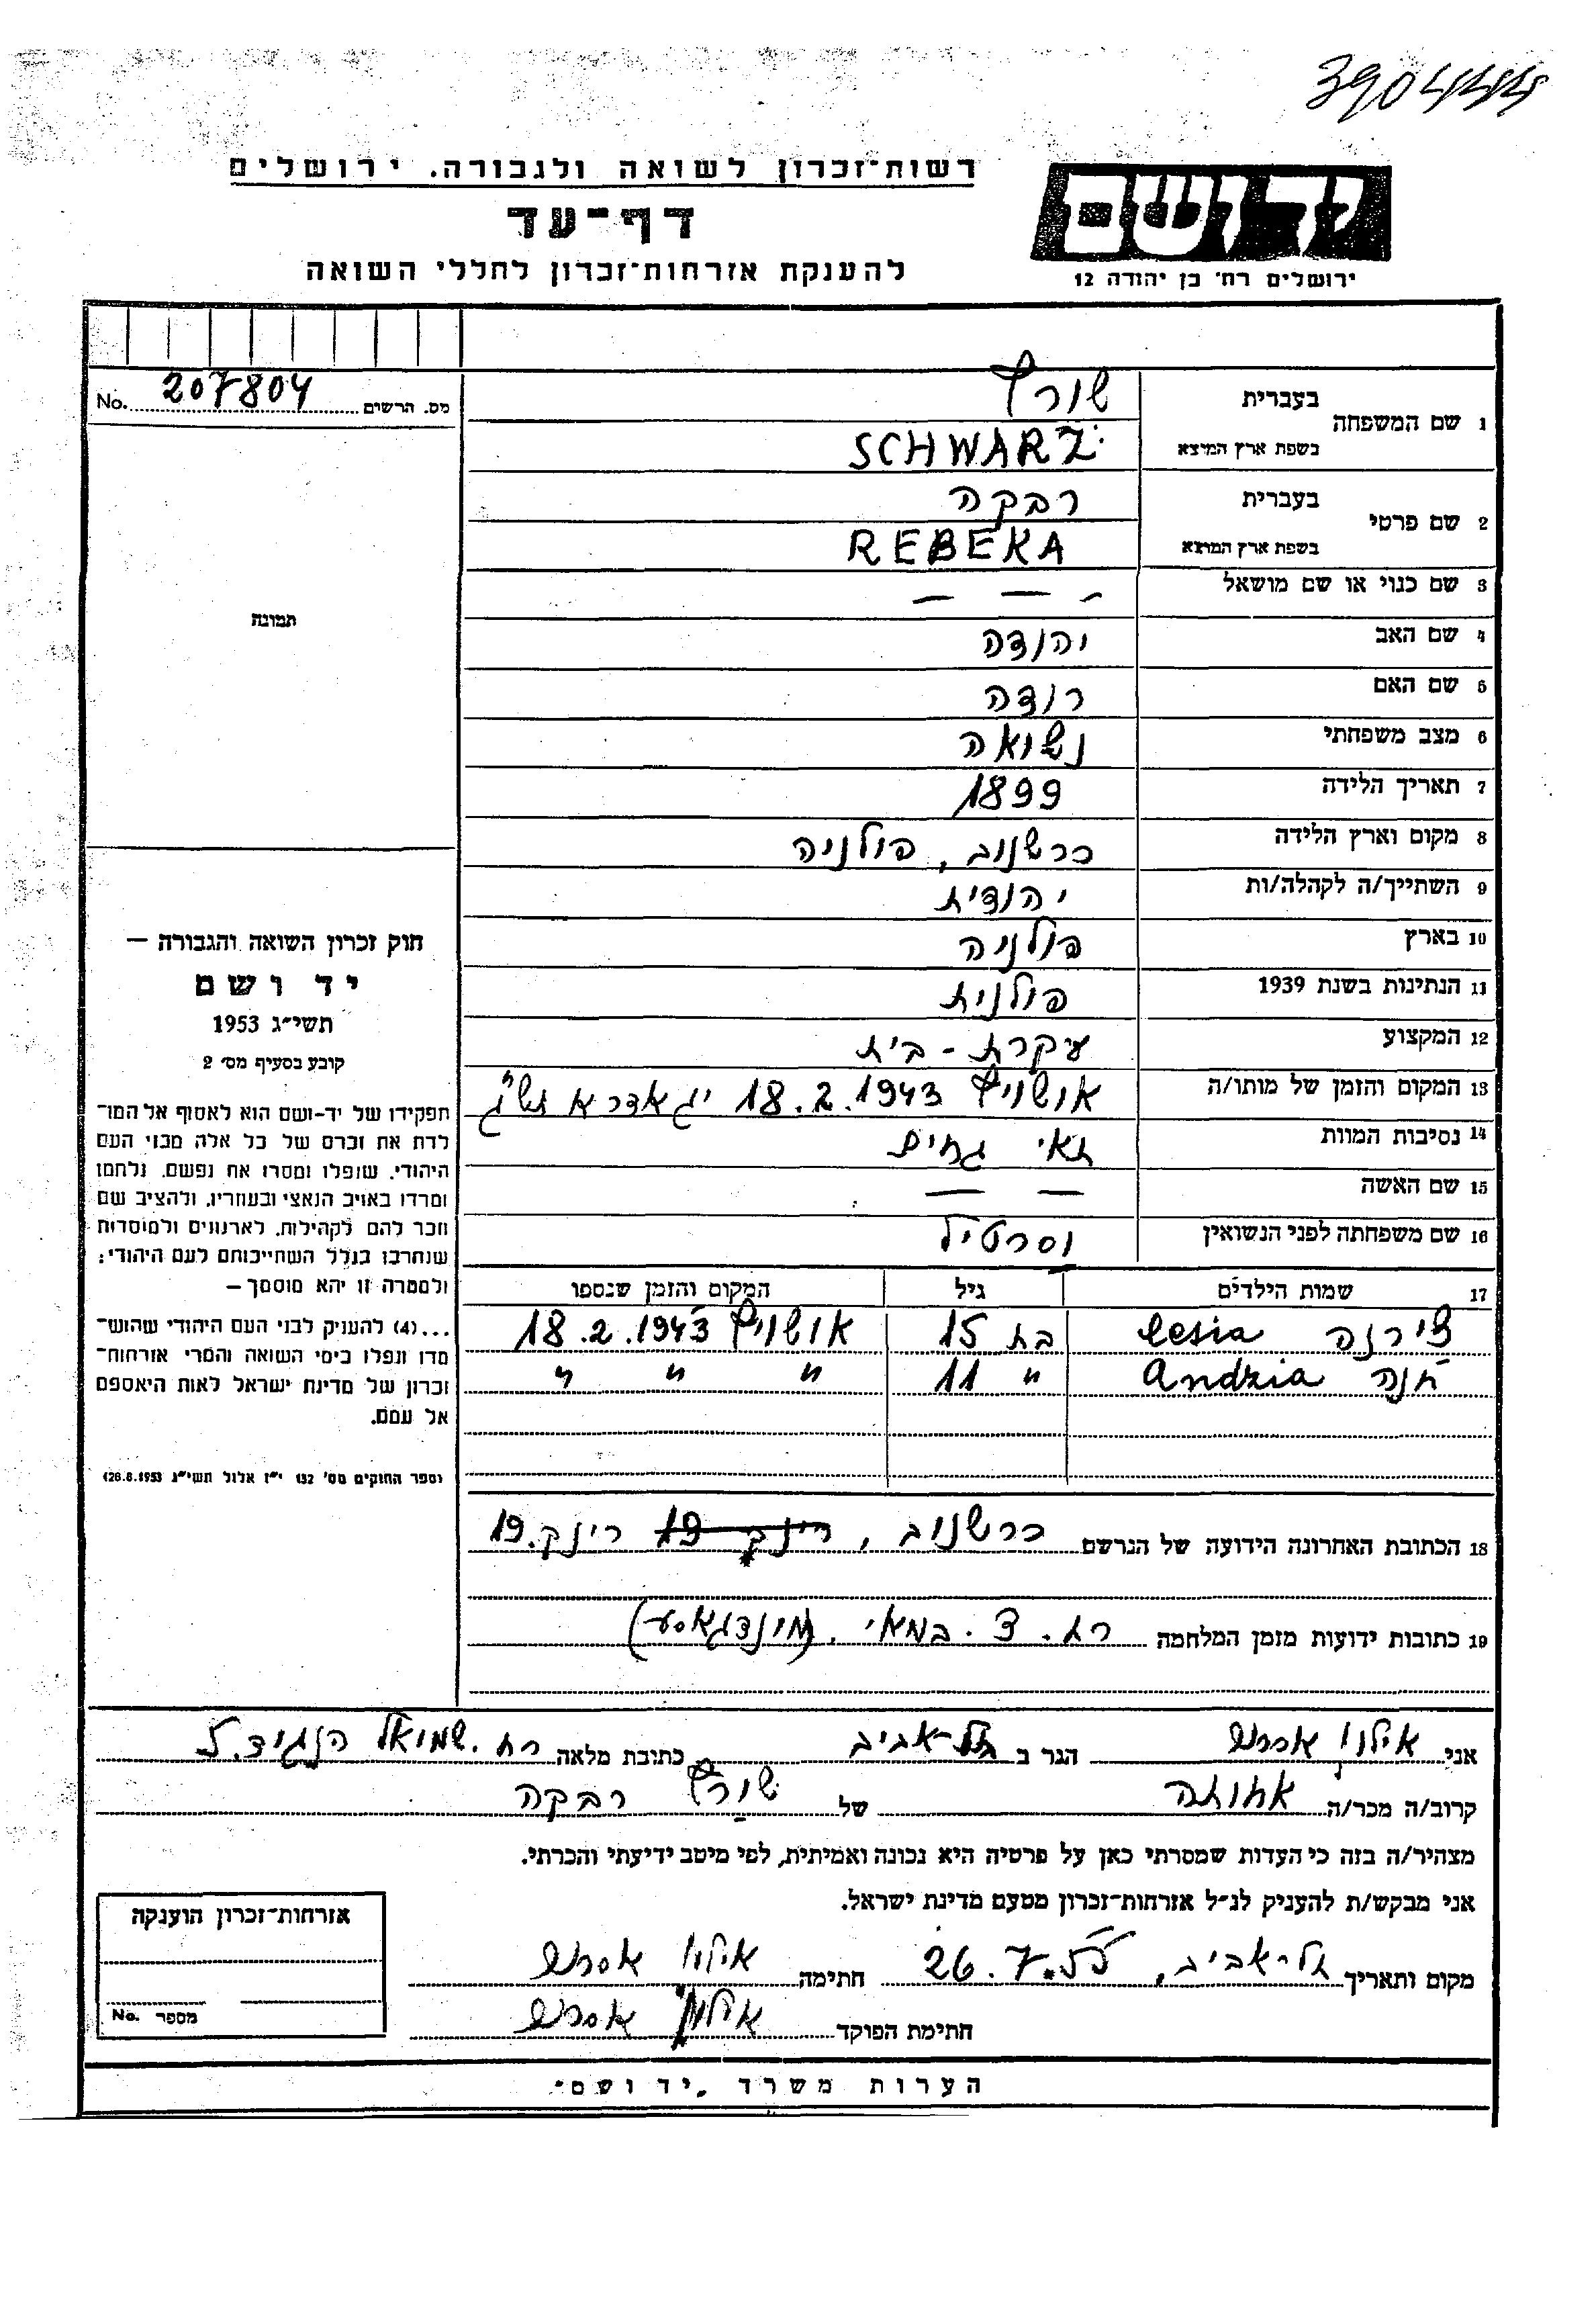 390444
רשות־זכרון לשואה ולגבורה. ירושלים
דף־עד
להענקת אזרחות־זכרון לחללי השואה
יד ושם
ירושלים רח' בן יהודה 12
מס. הרשום 207804 No.
תמונה
1 שם המשפחה
בעברית שורץ
בשפת ארץ המוצא SCHWARZ
2 שם פרטי
בעברית רבקה
בשפת ארץ המוצא REBEKA
3 שם כנוי או שם מושאל — — —
4 שם האב יהודה
5 שם האם רודה
6 מצב משפחתי נשואה
7 תאריך הלידה 1899
8 מקום וארץ הלידה כרשנוב, פולניה
9 השתייך/ה לקהלה/ות יהודית
10 בארץ פולניה
11 הנתינות בשנת 1939 פולנית
12 המקצוע עקרת - בית
13 המקום והזמן של מותו/ה אושויץ 18.2.1943 יג אדר א תש"ג
14 נסיבות המוות תאי גזים
15 שם האשה — —
16 שם משפחתה לפני הנשואין וסרטיל
17 שמות הילדים גיל המקום והזמן שנספו
צירנה Cesia בת 15 אושויץ 18.2.1943
חנה Andzia " 11 " " "
18 הכתובת האחרונה הידועה של הנרשם כרשנוב, רינק 19 רינק. 19
19 כתובות ידועות מזמן המלחמה רח. 3. במאי.
חוק זכרון השואה והגבורה —
יד ושם
תשי״ג 1953
קובע בסעיף מס׳ 2
תפקידו של יד-ושם הוא לאסוף אל המו־
לדת את זכרם של כל אלה מבני העם
היהודי, שנפלו ומסרו את נפשם, נלחמו
ומרדו באויב הנאצי ובעוזריו, ולהציב שם
וזכר להם לקהילות, לארגונים ולמוסדות
שנחרבו בגלל השתייכותם לעם היהודי;
ולמטרה זו יהא מוסמך —
...(4) להעניק לבני העם היהודי שהוש־
מדו ונפלו בימי השואה והמרי אזרחות־
זכרון של מדינת ישראל לאות היאספם
אל עמם.
(ספר החוקים מס׳ 132 י״ז אלול תשי״ג 26.8.1953)
אני הגר ב תל-אביב כתובת מלאה רח. שמואל הנגיד. 5
קרוב/ה מכר/ה אחותה של שורץ רבקה
מצהיר/ה בזה כי העדות שמסרתי כאן על פרטיה היא נכונה ואמיתית, לפי מיטב ידיעתי והכרתי.
אני מבקש/ת להעניק לנ״ל אזרחות־זכרון מטעם מדינת ישראל.
מקום ותאריך תל-אביב, 26.7.55 חתימה
חתימת הפוקד
אזרחות־זכרון הוענקה
מספר No.
הערות משרד „יד ושם״